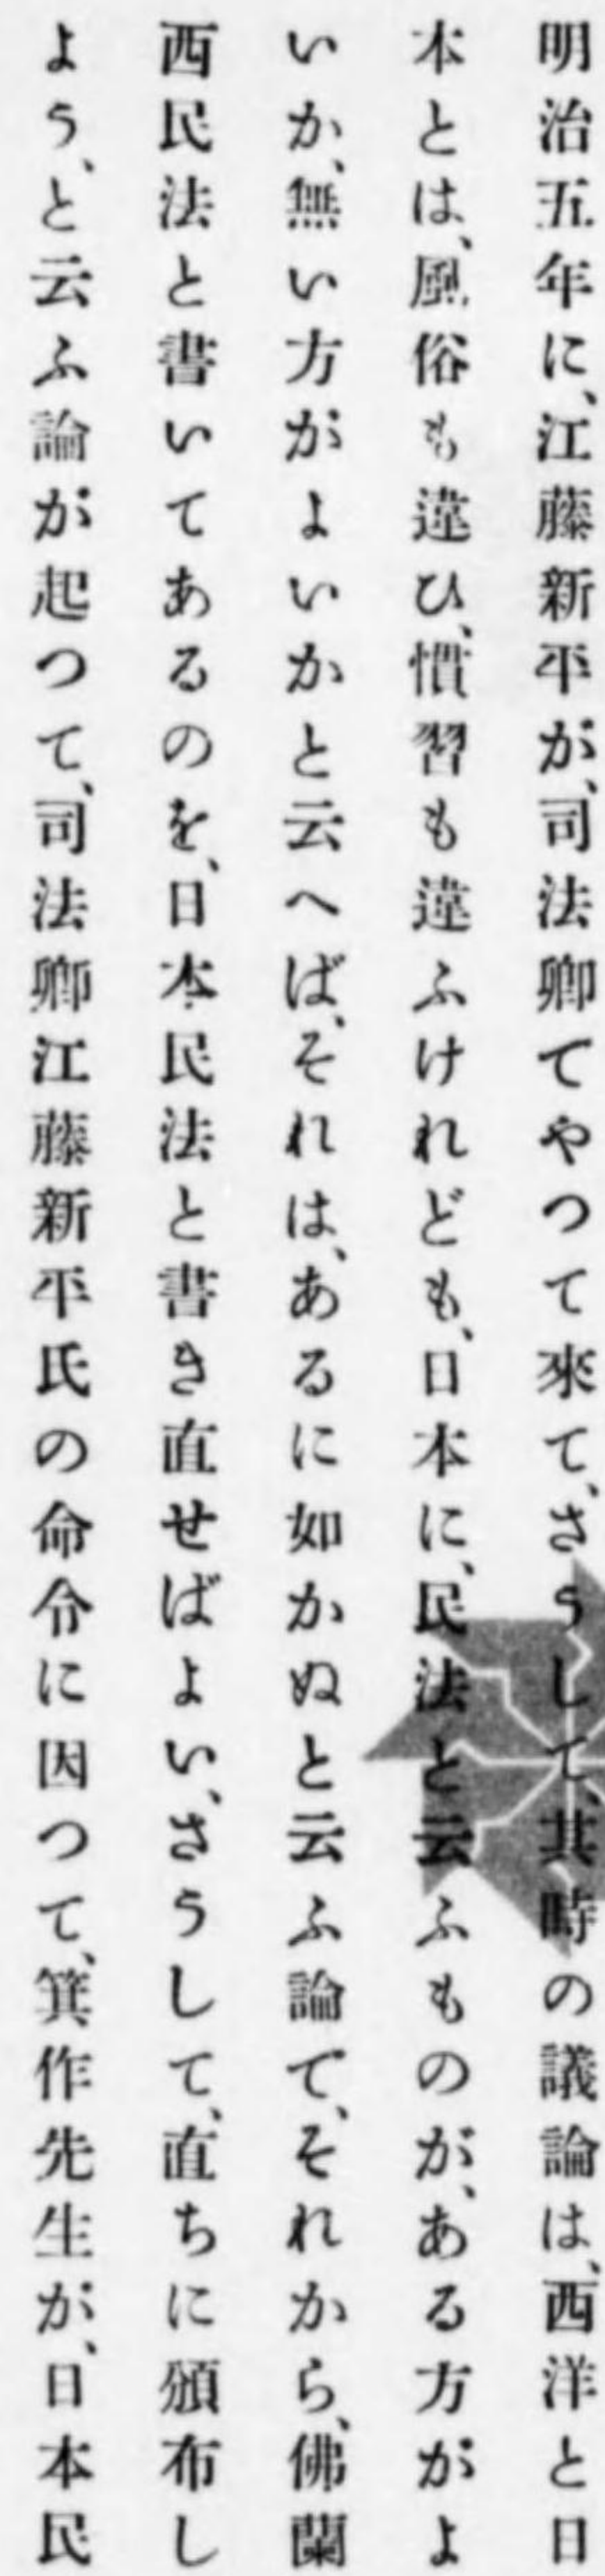 明治五年に、江藤新平が、司法卿てやつて來て、さうして、其時の議論は、西洋と日
本とは、風俗も違ひ、慣習も違ふけれども、日本に、民法と云ふものが、ある方がよ
いか、無い方がよいかと云へば、それは、あるに如かぬと云ふ論で、それから、佛蘭
西民法と書いてあるのを、日本民法と書き直せばよい、さうして、直ちに頒布し
よう、と云ふ論が起つて、司法卿江藤新平氏の命令に因つて、箕作先生が、日本民